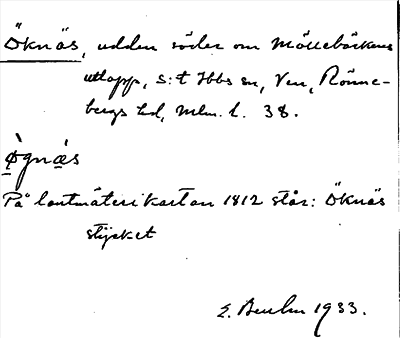 Öknäs, udden söder om Möllebäckens
utlopp, S:t Ibbs sn, Ven, Rönne-
bergs hd, Mlm. l. 38.
Ògnæs
På lantmäterikartan 1812 står: Öknäs
stycket
1933.